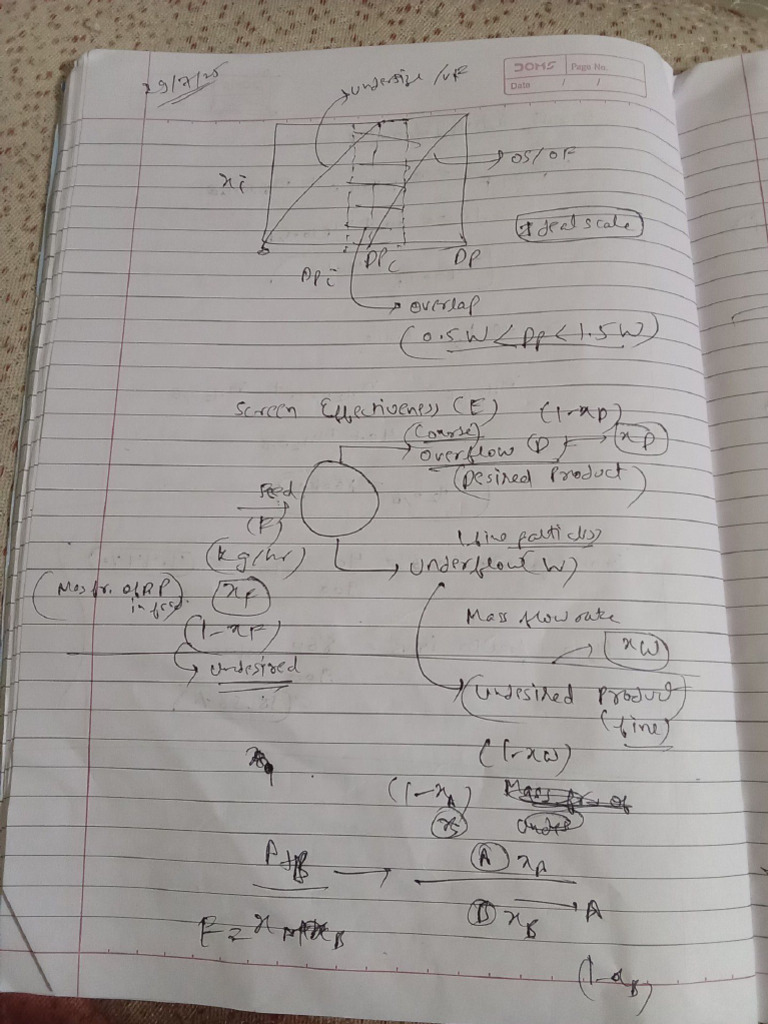 29/7/25
DOMS Page No.
Date / /
undersize /UF
xi
OS/OF
Ideal scale
DPi DPc DP
overlap
(0.5W < Dp < 1.5W)
Screen Effectiveness (E) (1-xD)
(coarse)
overflow (D) xD
(Desired Product)
Feed
(F)
(kg/hr)
(fine particles)
underflow (W)
(Mass fr. of DP in feed) xF
(1-xF)
undesired
Mass flow rate
xW
(undesired product)
(fine)
(1-xW)
(1-xA)
A xA
B xB → A
(1-xB)